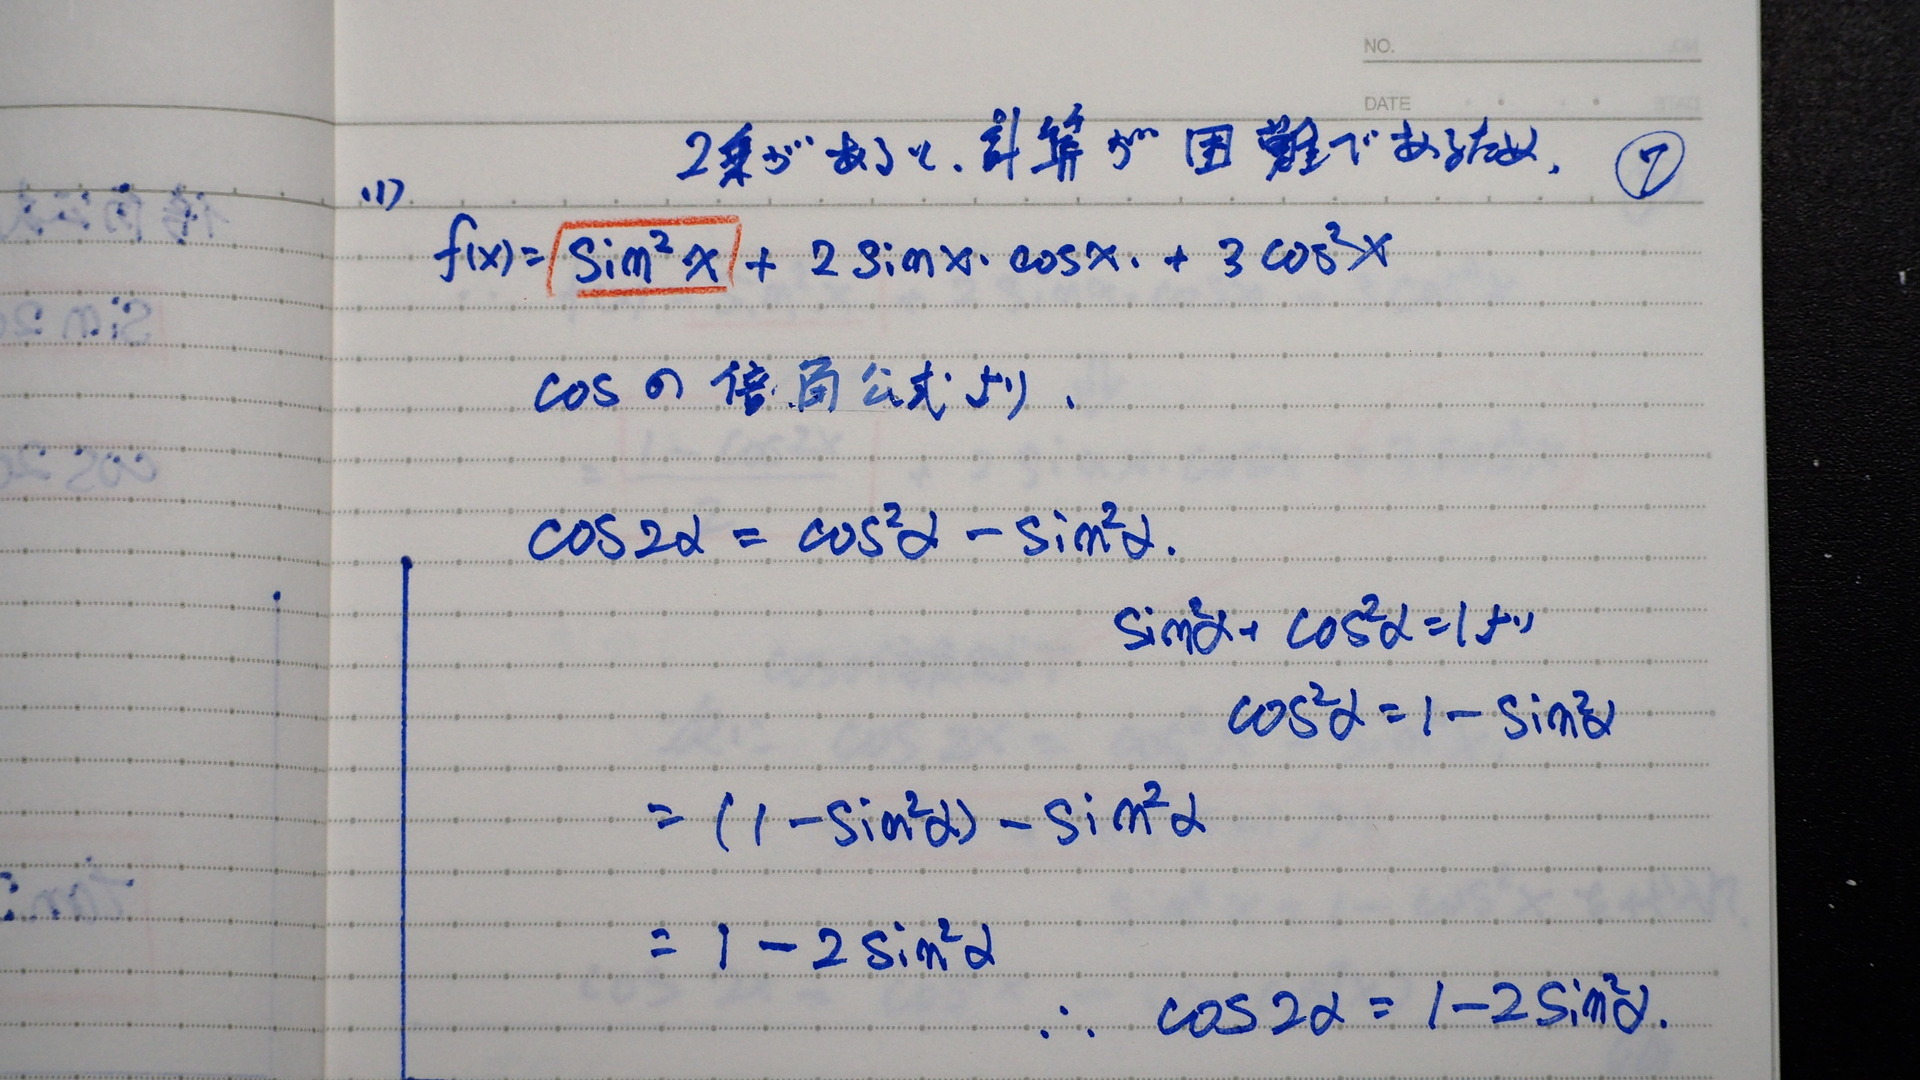 NO.
DATE
2乗があると、計算が困難であるため、 ⑦
(1)
f(x) = sin²x + 2 sin x・cos x・+ 3 cos²x
cosの倍角公式より、
cos2α = cos²α - sin²α.
sin²α + cos²α = 1より
cos²α = 1 - sin²α
= (1 - sin²α) - sin²α
= 1 - 2 sin²α
∴ cos2α = 1 - 2 sin²α.